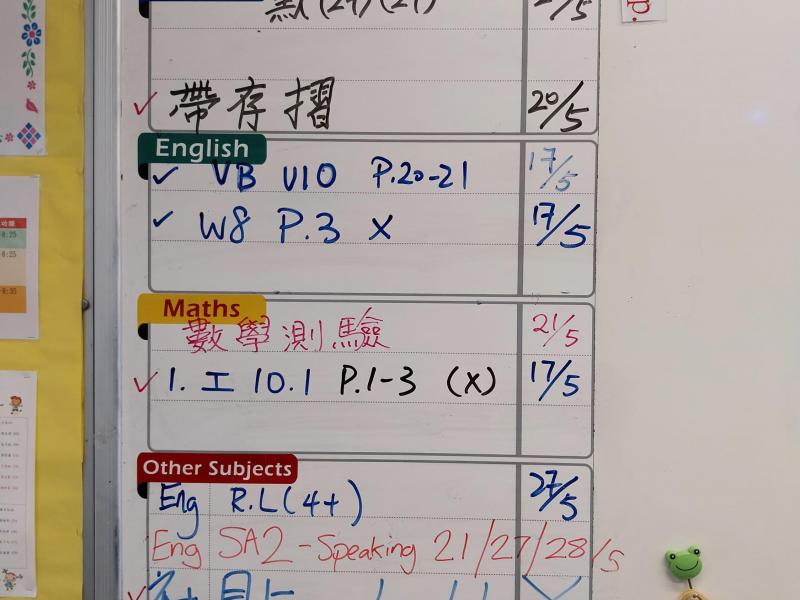 帶存摺 20/5
English
✓ VB U10 P.20-21 17/5
✓ W8 P.3 X 17/5
Maths
數學測驗 21/5
✓ 1. 工 10.1 P.1-3 (X) 17/5
Other Subjects
Eng R.L (4+) 27/5
Eng SA2 - Speaking 21/27/28/5